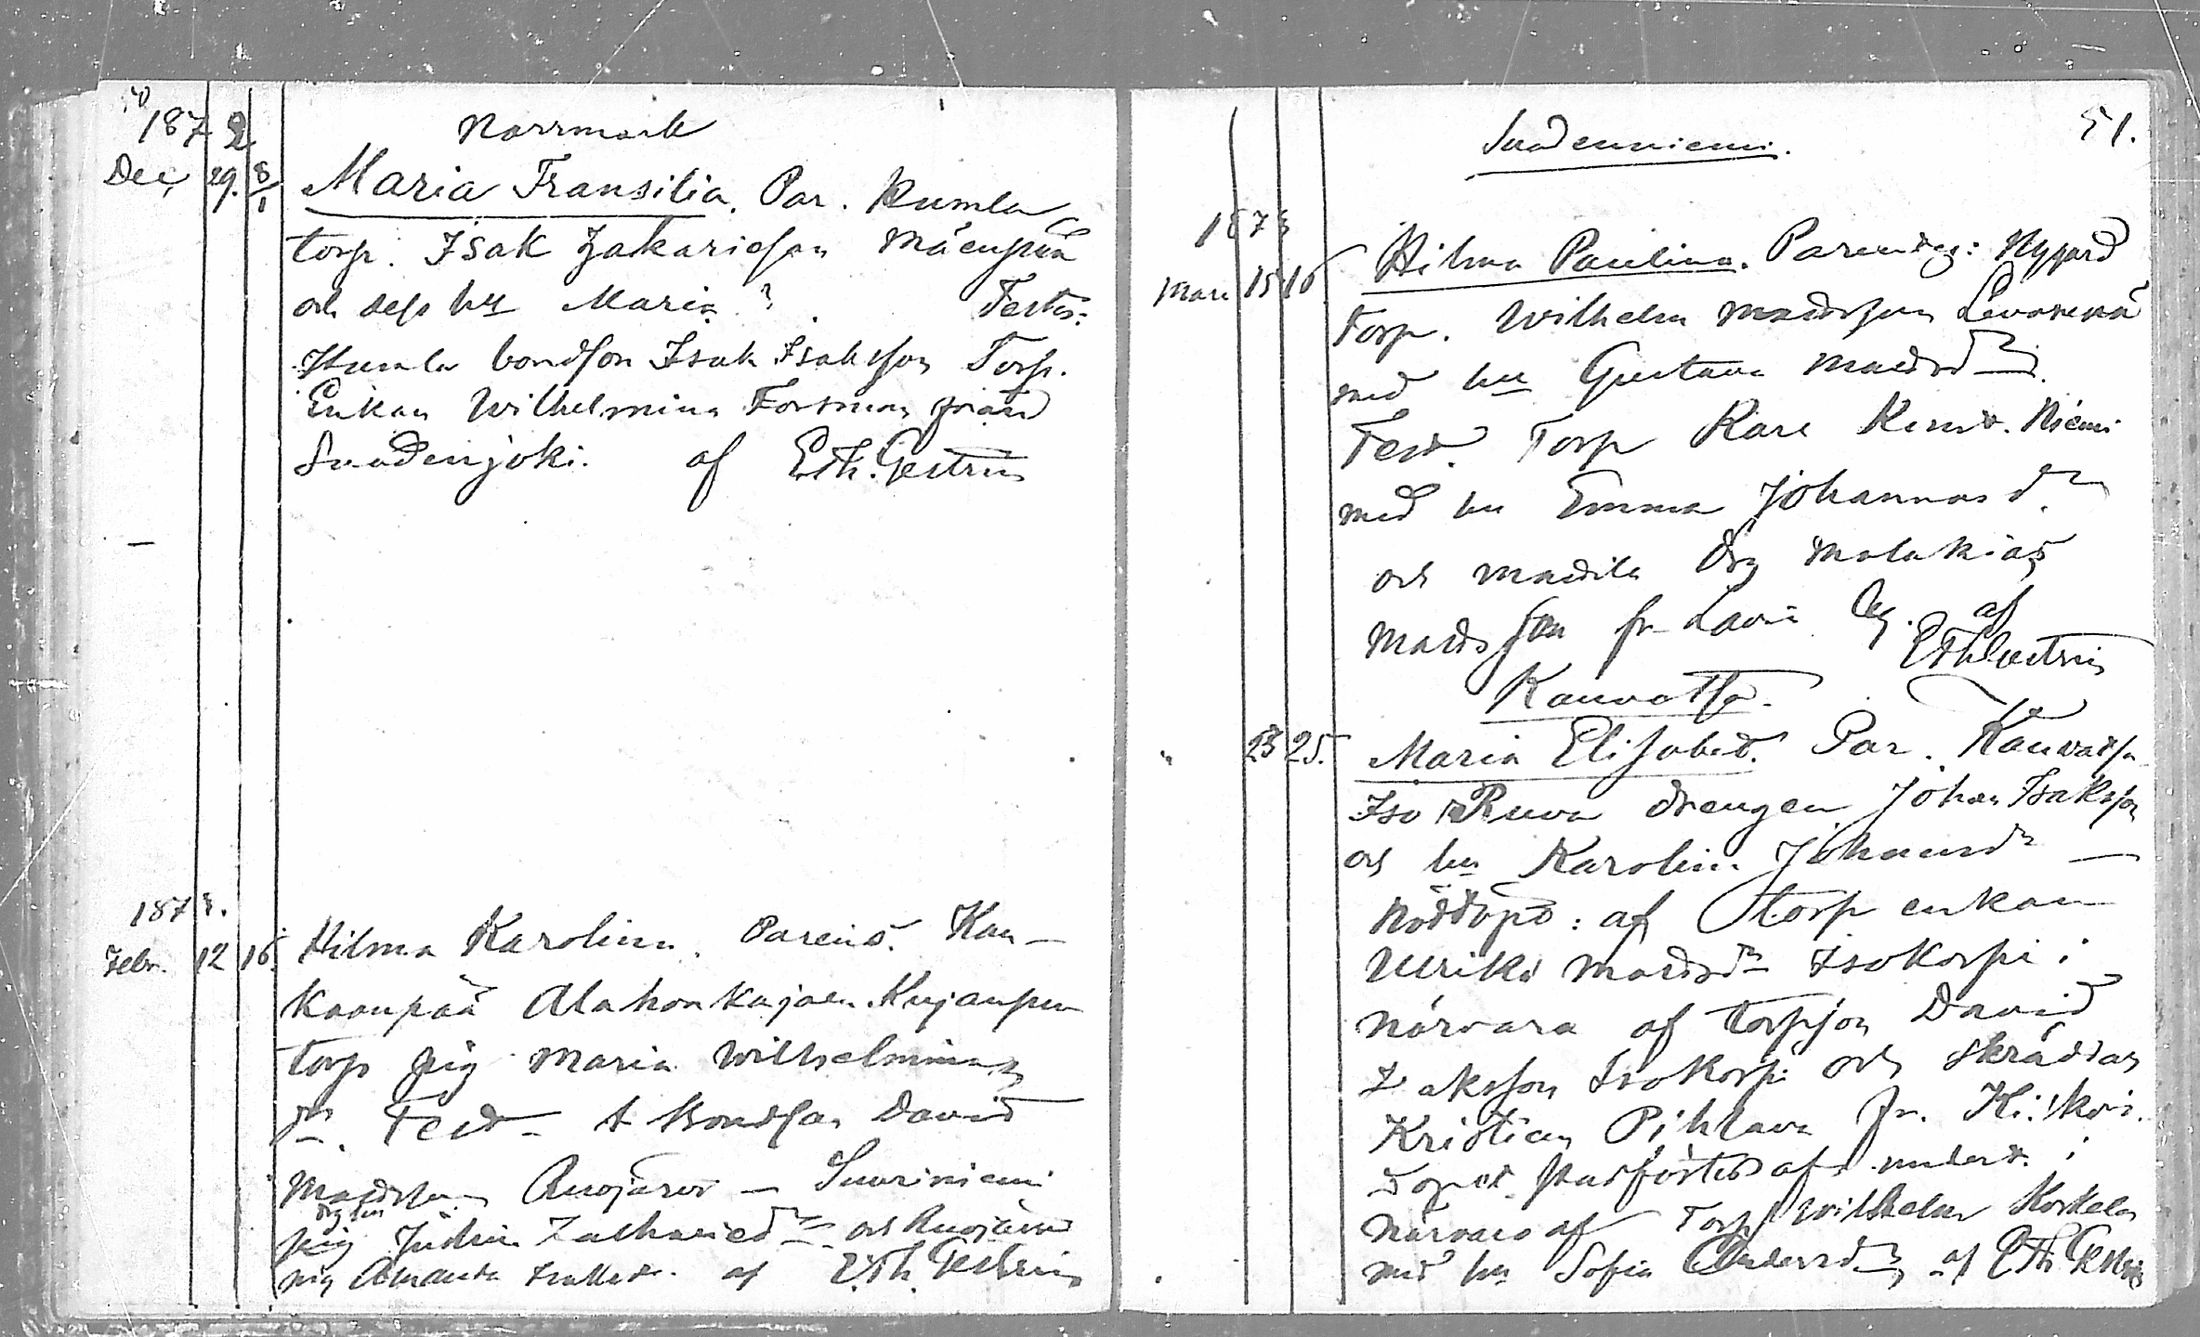 1872
Norrmark
Dec. 29. 8/1 Maria Fransilia. Par. Kumla
torp. Isak Zakariasson Mäenpää
och dess hu Maria ? Testes:
Kumla bondson Isak Isaksson Torp.
Enkan Wilhelmina Forsman från
Suodenjoki. af E.Th. Gestrin
1873.
Febr. 12 16. Hilma Karolina. Parens. Kan-
kaanpää Alahonkajoen Kujanpää
torp pig Maria Wilhelmina
dr. Test. bondson David
Madsson Ruojärvi - Suuriniemi
pig Zachariedr och Ruojärvi
pig Amanda af E.Th. Gestrin
51.
Suodenniemi.
1873
Mars 15 16 Hilma Paulina. Parentes: Nygård
Torp. Wilhelm Madsson
med hu Gustava Madsdr.
Test. Torp Karl Niemi
med hu Emma Johannasdr.
och Madila Drg Malakias
Madsson fr Lavia By. af
EThGestrin
Kauvatsa.
" 23 25. Maria Elisabet. Par. Kauvatsa
Iso Ruva drengen Johan Isaksson
och hu Karolina Johansdr —
Nöddöpt: af torp enkan
Ulrika Madsdr Isokorpi i
närvara af torpson David
Isaksson Isokorpi och skräddar
Kristian Pihlava fr.
Dopet stadfästes af undert. i
närvaro af Torp Wilhelm Korkela
med hu Sofia Andersdr af ETh Gestrin